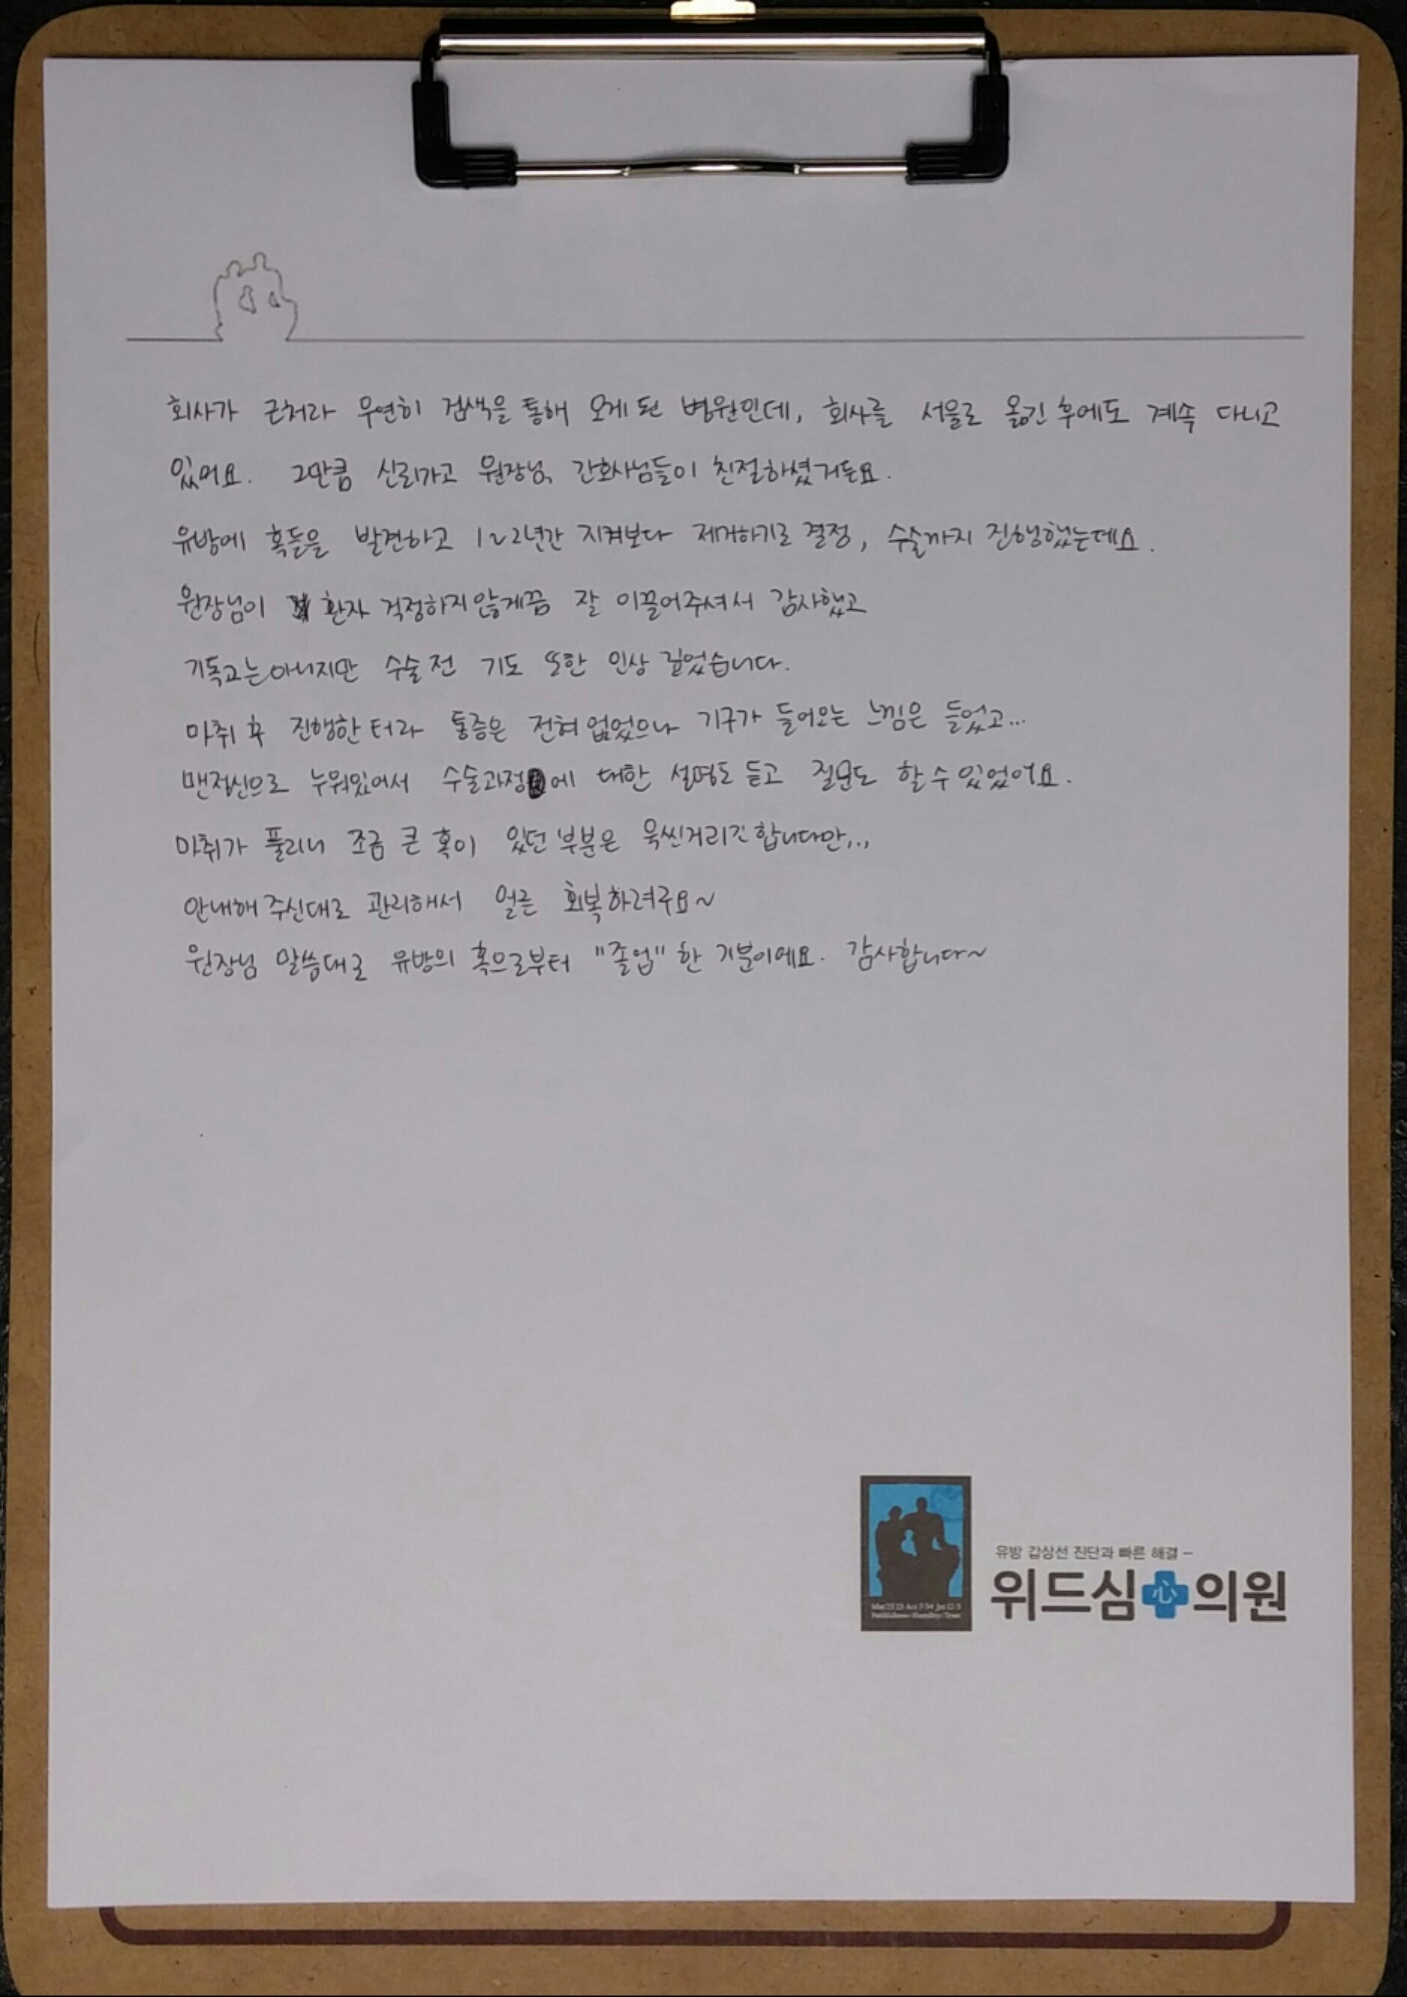 회사가 근처라 우연히 검색을 통해 오게 된 병원인데, 회사를 서울로 옮긴 후에도 계속 다니고
있어요. 그만큼 신뢰가고 원장님, 간호사님들이 친절하셨거든요.
유방에 혹들을 발견하고 1~2년간 지켜보다 제거하기로 결정, 수술까지 진행했는데요.
원장님이 환자 걱정하지않게끔 잘 이끌어주셔서 감사했고
기독교는아니지만 수술 전 기도 또한 인상 깊었습니다.
마취 후 진행한 터라 통증은 전혀 없었으나 기구가 들어오는 느낌은 들었고...
맨정신으로 누워있어서 수술과정에 대한 설명도 듣고 질문도 할 수 있었어요.
마취가 풀리니 조금 큰 혹이 있던 부분은 욱씬거리긴합니다만...
안내해 주신대로 관리해서 얼른 회복하려구요~
원장님 말씀대로 유방의 혹으로부터 "졸업" 한 기분이에요. 감사합니다~
유방 갑상선 진단과 빠른 해결 –
위드심心의원